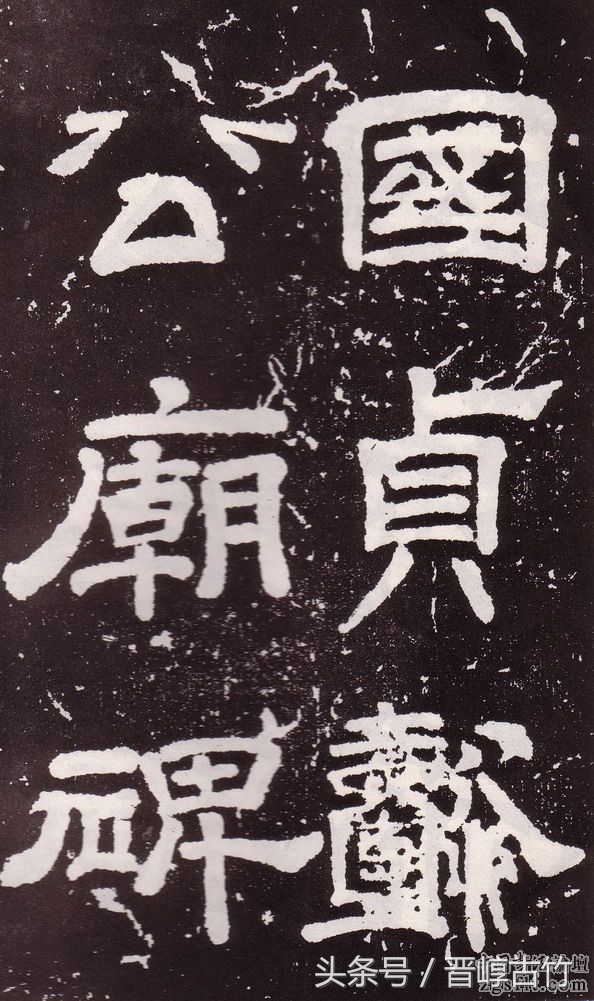 國貞
公廟碑
头条号 / 晋崞古竹